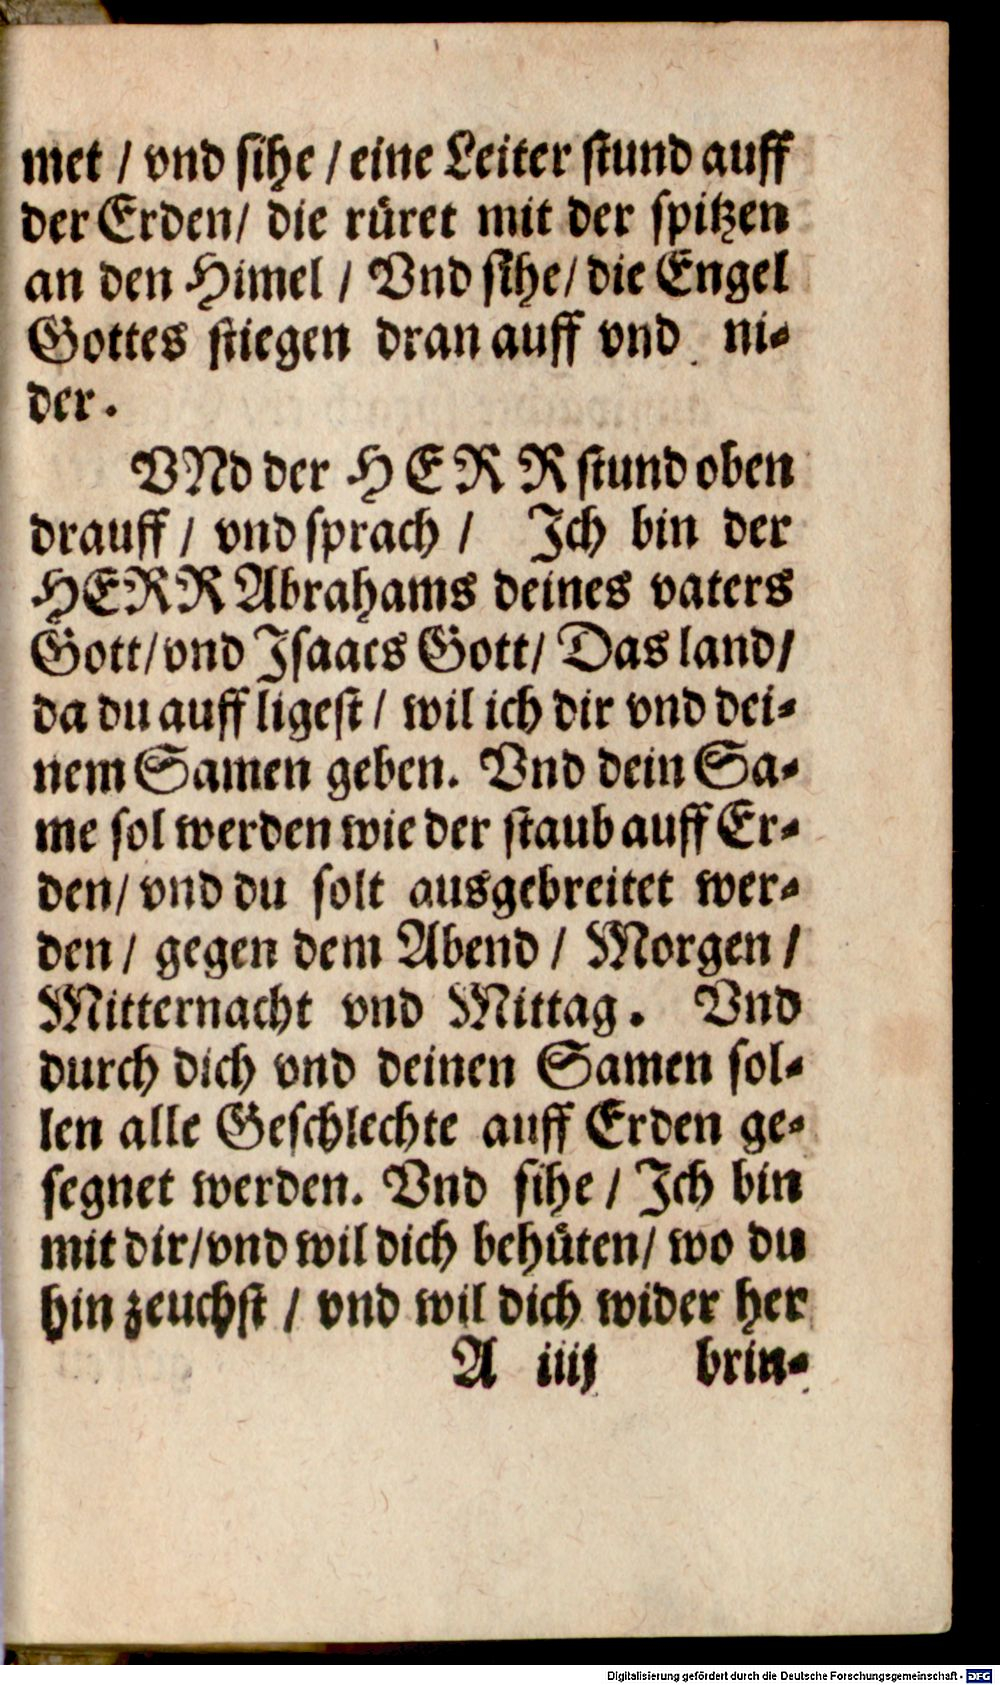 met / vnd sihe / eine Leiter stund auff
der Erden / die rüret mit der spitzen
an den Himel / Vnd sihe / die Engel
Gottes stiegen dran auff vnd ni-
der.
VNd der HERR stund oben
drauff / vnd sprach / Ich bin der
HERR Abrahams deines vaters
Gott / vnd Isaacs Gott / Das land /
da du auff ligest / wil ich dir vnd dei-
nem Samen geben. Vnd dein Sa-
me sol werden wie der staub auff Er-
den / vnd du solt ausgebreitet wer-
den / gegen dem Abend / Morgen /
Mitternacht vnd Mittag. Vnd
durch dich vnd deinen Samen sol-
len alle Geschlechte auff Erden ge-
segnet werden. Vnd sihe / Ich bin
mit dir / vnd wil dich behüten / wo du
hin zeuchst / vnd wil dich wider her
A iiij brin-
Digitalisierung gefördert durch die Deutsche Forschungsgemeinschaft - DFG